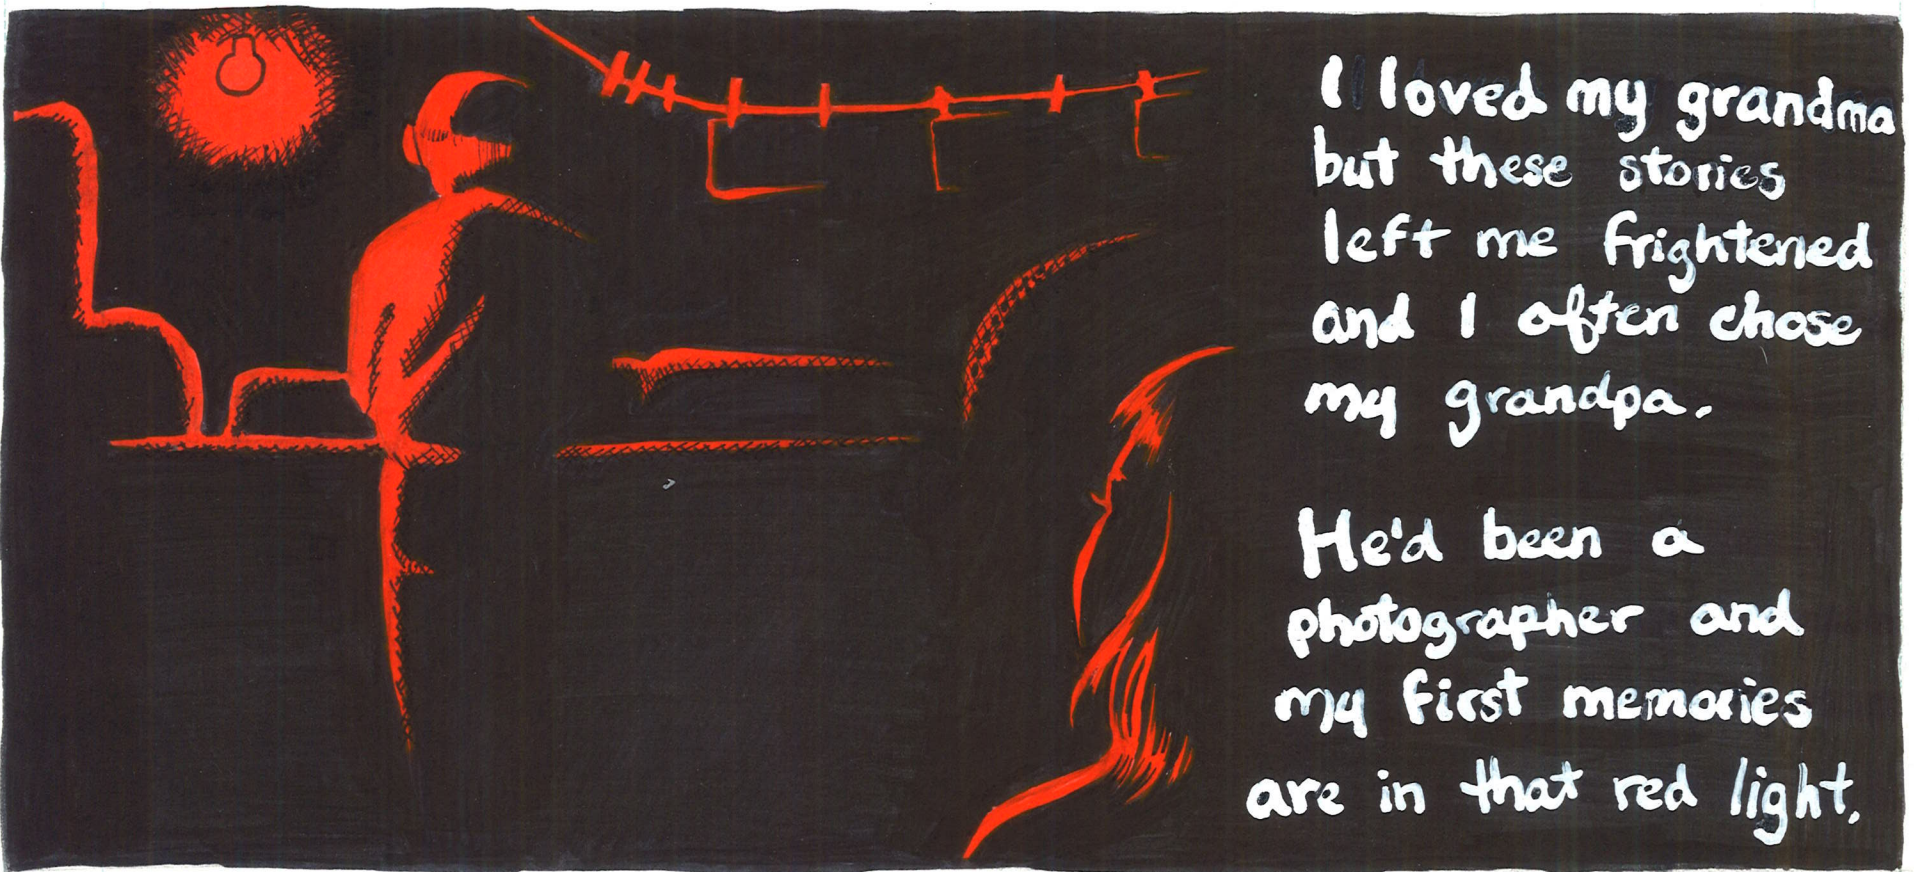 I loved my grandma
but these stories
left me frightened
and I often chose
my grandpa.
He'd been a
photographer and
my first memories
are in that red light.